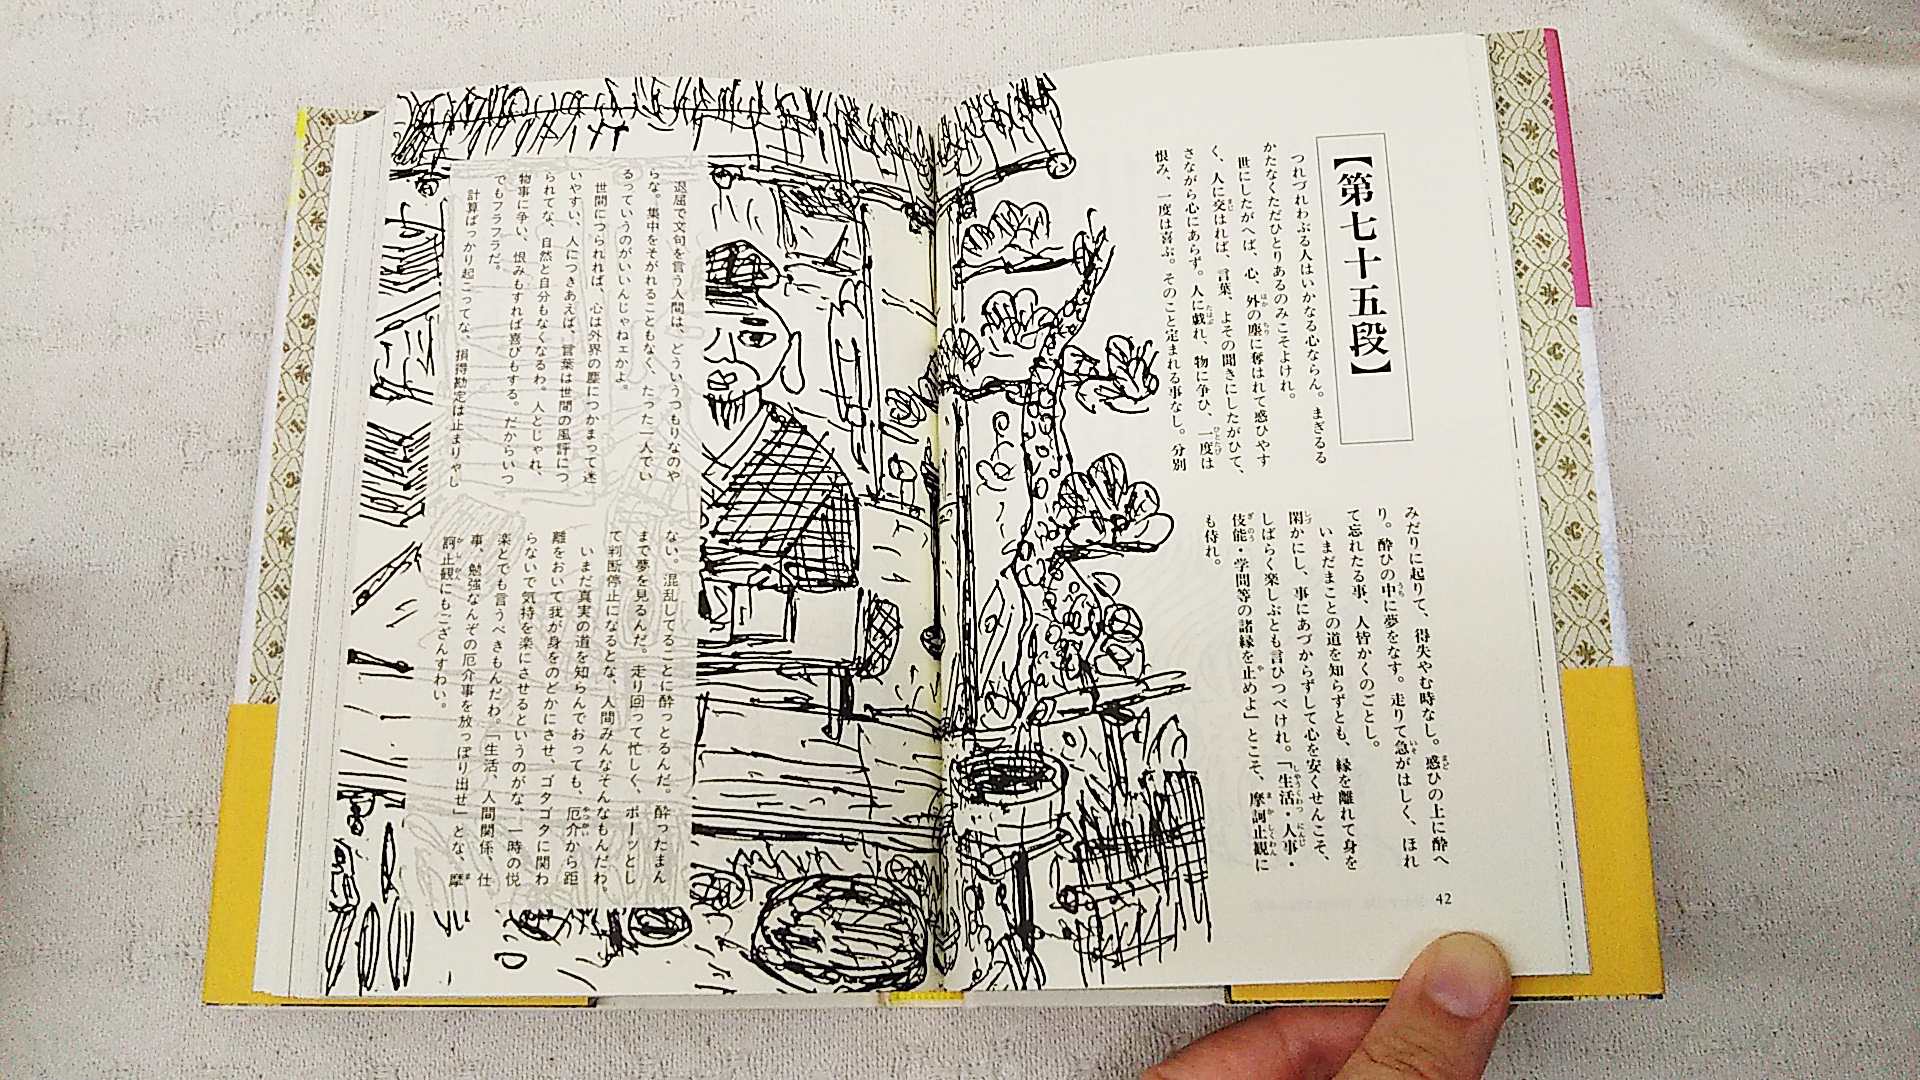 【第七十五段】
つれづれわぶる人はいかなる心ならん。まぎるる
かたなくただひとりあるのみこそよけれ。
世にしたがへば、心、外の塵に奪はれて惑ひやす
く、人に交はれば、言葉、よその聞きにしたがひて、
さながら心にあらず。人に戯れ、物に争ひ、一度は
恨み、一度は喜ぶ。そのこと定まれる事なし。分別
みだりに起りて、得失やむ時なし。惑ひの上に酔へ
り。酔ひの中に夢をなす。走りて急がはしく、ほれ
て忘れたる事、人皆かくのごとし。
いまだまことの道を知らずとも、縁を離れて身を
閑かにし、事にあづからずして心を安くせんこそ、
しばらく楽しぶとも言ひつべけれ。「生活・人事・
伎能・学問等の諸縁を止めよ」とこそ、摩訶止観に
も侍れ。
42
退屈で文句を言う人間は、どういうつもりなのや
らな。集中をそがれることもなく、たった一人でい
るっていうのがいいんじゃねェかよ。
世間につられれば、心は外界の塵につかまって迷
いやすい、人につきあえば、言葉は世間の風評につ
られてな、自然と自分もなくなるわ。人とじゃれ、
物事に争い、恨みもすれば喜びもする。だからいつ
でもフラフラだ。
計算ばっかり起こってな、損得勘定は止まりゃし
ない。混乱してることに酔っとるんだ。酔ったまん
まで夢を見るんだ。走り回って忙しく、ボーッとし
て判断停止になるとな、人間みんなそんなもんだわ。
いまだ真実の道を知らんでおっても、厄介から距
離をおいて我が身をのどかにさせ、ゴタゴタに関わ
らないで気持を楽にさせるというのがな、一時の悦
楽とでも言うべきもんだわ。「生活、人間関係、仕
事、勉強なんぞの厄介事を放っぽり出せ」とな、摩
訶止観にもござんすわい。